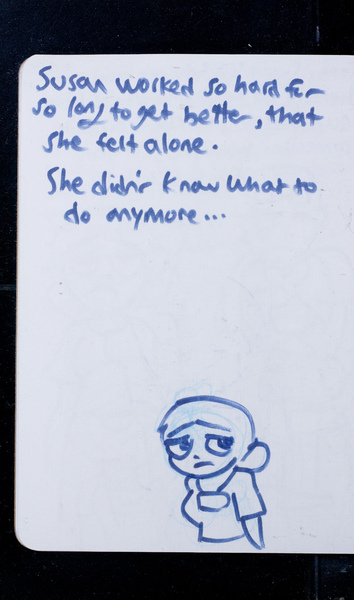 Susan worked so hard for
so long to get better, that
she felt alone.
She didn't know what to
do anymore...